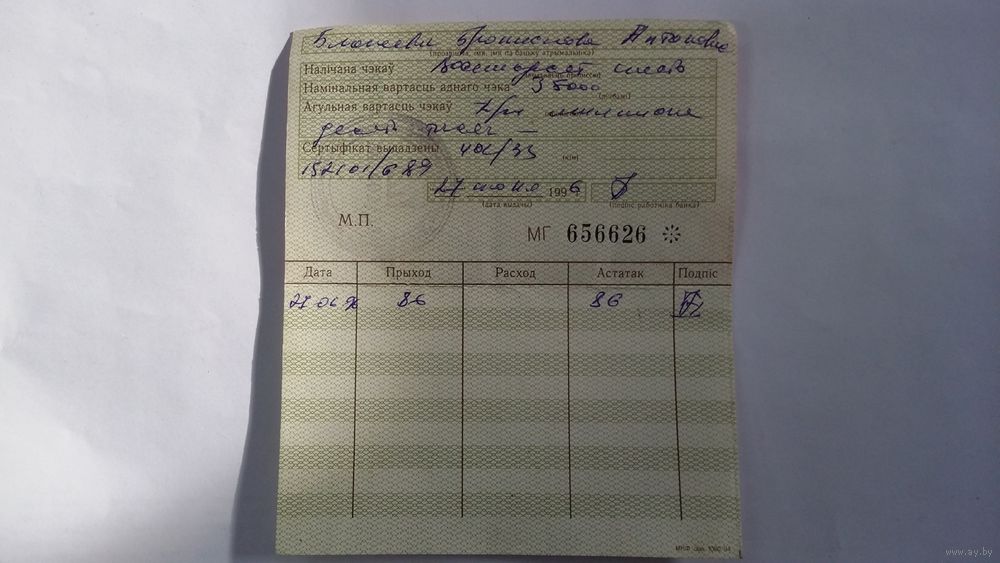 Антоновна
(прозвішча, імя, імя па бацьку атрымальніка)
Налічана чэкаў Восемдзесят шесть
Намінальная вартасць аднаго чэка 35000
Агульная вартасць чэкаў три миллиона
десять тысяч —
Сертыфікат выдадзены 401/33
152101/689
27 июня 1996
(дата выдачы) (подпіс работніка банка)
М.П.
МГ 656626
Дата Прыход Расход Астатак Подпіс
27.06.96 86 86
www.ay.by